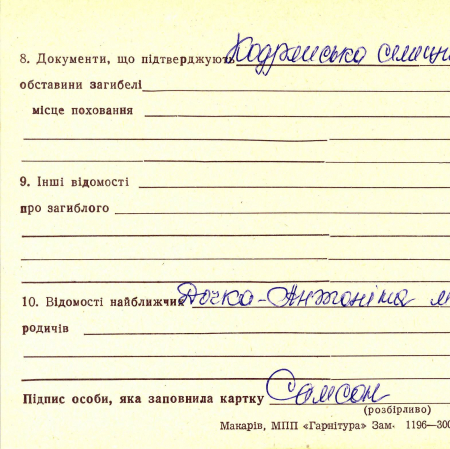 8. Документи, що підтверджують Кодрянська селищ
обставини загибелі
місце поховання
9. Інші відомості
про загиблого
10. Відомості найближчих Дочка - Антоніна
родичів
Підпис особи, яка заповнила картку Самсон
(розбірливо)
Макарів, МПП «Гарнітура» Зам. 1196—300